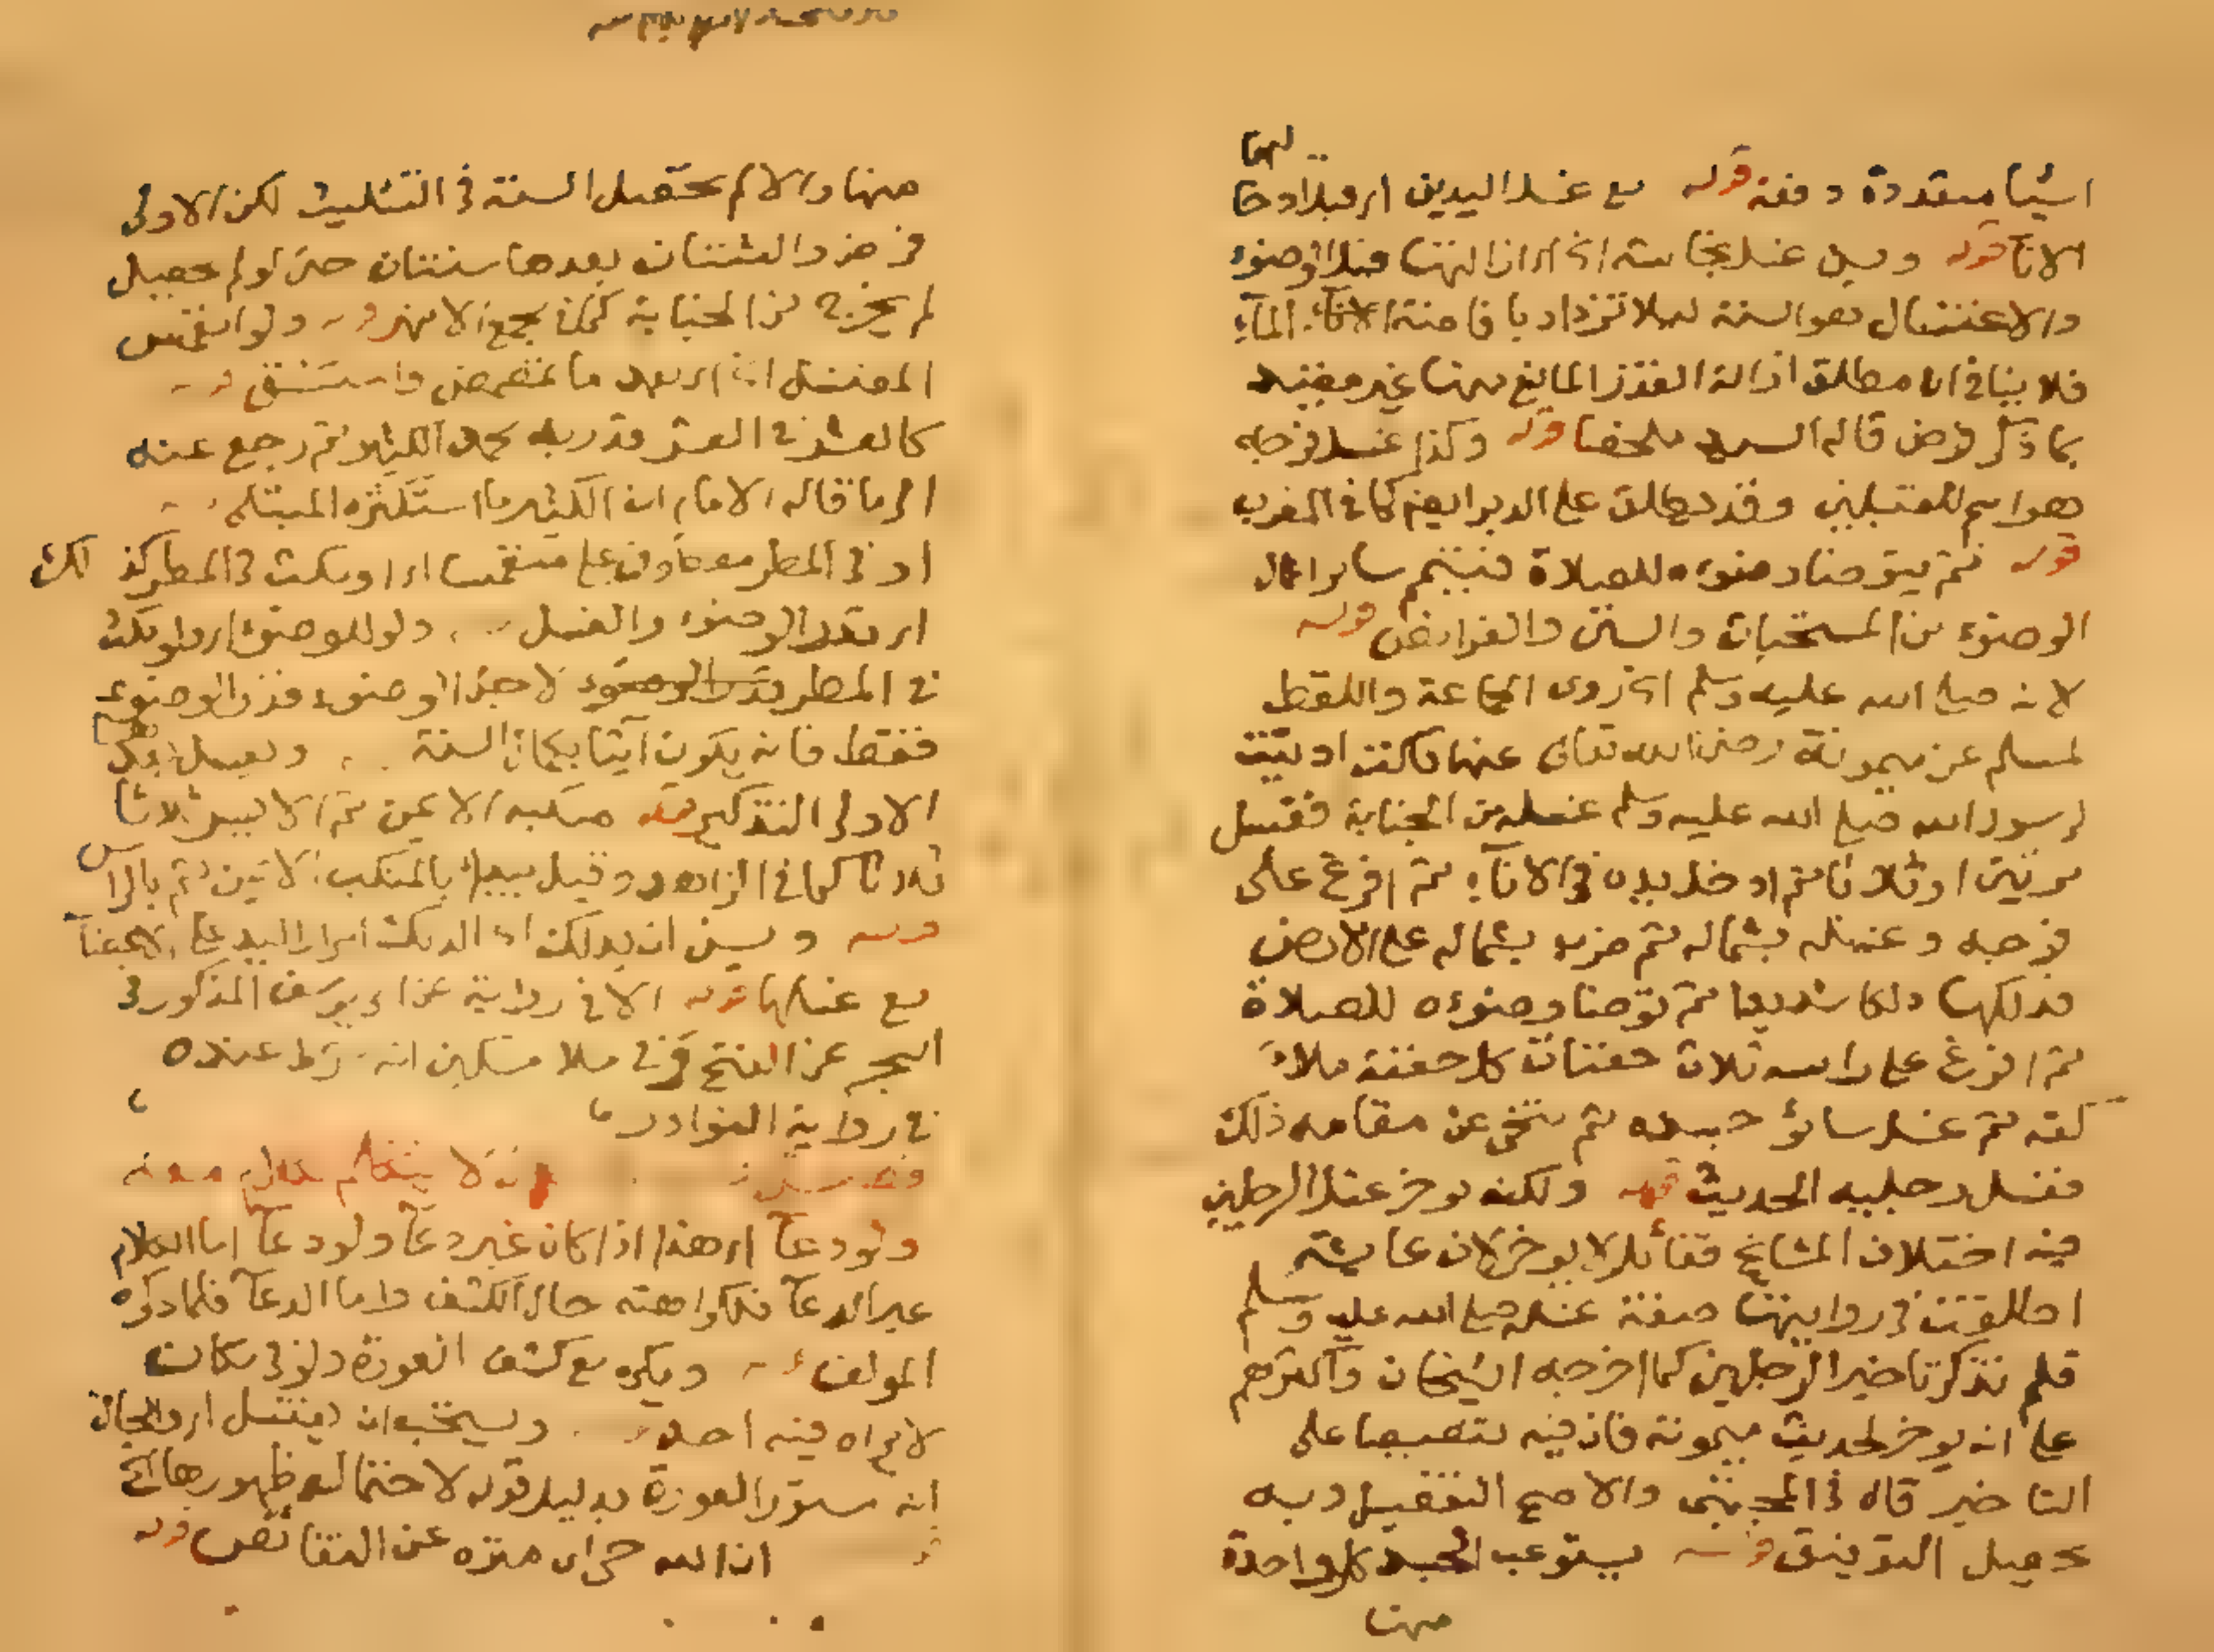 لهما
اشيا متعددة دفعة قوله مع غسل اليدين اي قبل ادخا
الانا قوله ويسن غسل نجاسة اي ازالتها قبل الوضوء
والاغتسال هو السنة ليلا تزداد باضافة الماء
فلا ينافي ان مطلق ازالة القدر المانع منها غير مقيد
بما ذكر فرض قاله السيد ملخصا قوله وكذا غسل فرجه
هو اسم للقبلين وقد يطلق على الدبر ايضا كما في المغرب
قوله ثم يتوضا وضوءه للصلاة فيتم ساير اعمال
الوضوء من المستحبات والسنن والفرايض قوله
لانه صلى الله عليه وسلم اي روى الجماعة واللفظ
لمسلم عن ميمونة رضي الله تعالى عنها قالت ادنيت
لرسول الله صلى الله عليه وسلم غسله من الجنابة فغسل
مرتين او ثلاثا ثم ادخل يده في الاناء ثم افرغ على
فرجه وغسله بشماله ثم ضرب بشماله على الارض
فدلكها دلكا شديدا ثم توضا وضوءه للصلاة
ثم افرغ على راسه ثلاث حفنات كل حفنة ملأ
كفه ثم غسل سائر جسده ثم تنحى عن مقامه ذلك
فغسل رجليه الحديث قوله ولكنه يوخر غسل الرجلين
فيه اختلاف المشايخ فقائل لا يوخر لان عايشة
اطلقت في روايتها صفة غسله صلى الله عليه وسلم
فلم تذكر تاخير الرجلين كما اخرجه الشيخان واكثرهم
على انه يوخر لحديث ميمونة فان فيه تنصيصا على
التاخير قاله في المجتبى والاصح التفصيل وبه
يحصل التوفيق قوله يستوعب الجسد كل واحدة
منها
منها والا لم تحصل السنة في التثليث لكن الاولى
فرض والثنتان بعدها سنتان حتى لو لم يحصل
لم يخرج من الجنابة كما في مجمع الانهر قوله ولو انغمس
المغتسل اي بعد ما تمضمض واستنشق قوله
كالعشر في العشر قدر به محمد الكثير ثم رجع عنه
الى ما قاله الامام ان الكثير ما استكثره المبتلى
او في المطر معطوف على منغمسا اي او مكث في المطر كذلك
اي بقدر الوضوء والغسل ولو للوضوء اي ولو مكث
في المطر قدر الوضوء لاجل الوضوء قدر الوضوء
فقط فانه يكون آتيا بكمال السنة ويغسل بعد
الاولى التذكير قوله منكبه الايمن ثم الايسر ثلاثا
ثلاثا كما في الزاهدي وقيل يبدا بالمنكب الايمن ثم بالراس
قوله ويسن ان يدلك اي الدلك امرار اليد على الاعضاء
مع غسلها قوله الا في رواية عن ابي يوسف المذكور في
البحر عن الفتح وفي ملا مسكين انه شرط عنده
في رواية النوادر
ان لا يتكلم بكلام معه
ولو دعآ اي هذا اذا كان غير دعآ ولو دعآ اما الكلام
غير الدعآ فلكراهته حال الكشف واما الدعآ فلما ذكره
المولف ويكره مع كشف العورة ولو في مكان
لا يراه فيه احد ويستحب ان يغتسل اي والحال
انه مستور العورة بدليل قوله لاحتمال ظهورها الخ
ان الله حي اي منزه عن النقائص قوله